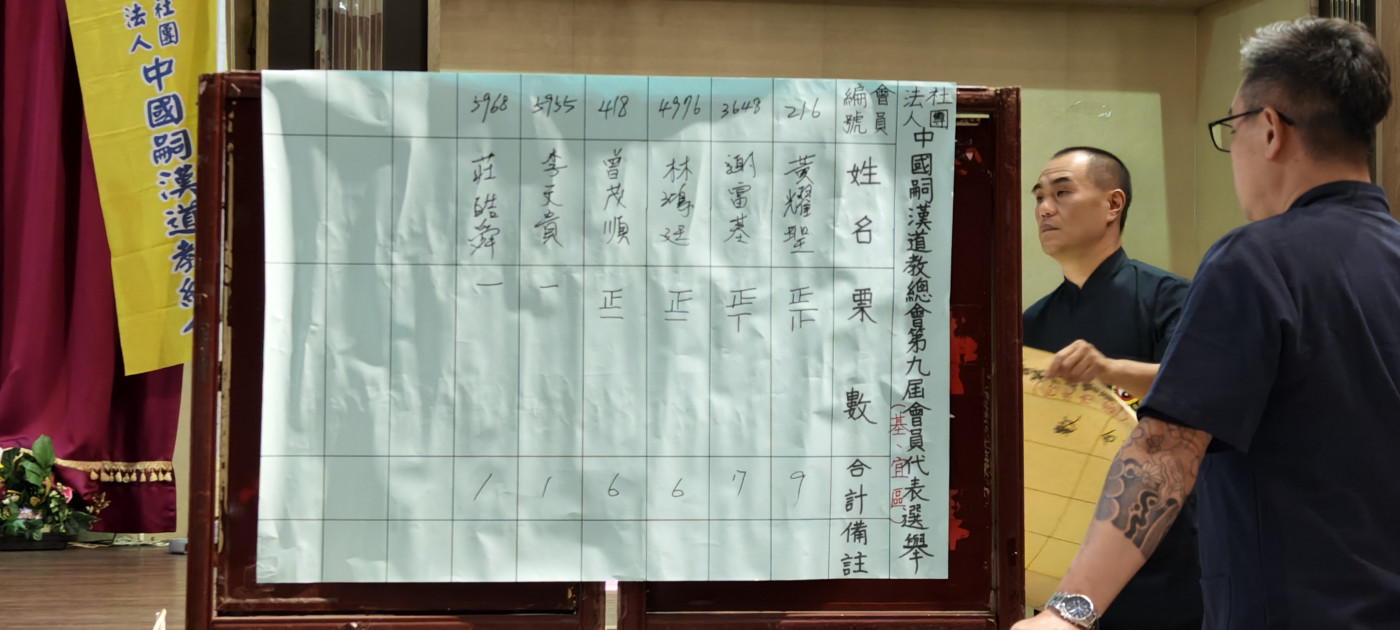 社團
法人中國嗣漢道教總
社團法人中國嗣漢道教總會第九屆會員代表選舉
(基、宜區)
會員編號 姓名 票數 合計 備註
216 黃耀聖 正正 9
3648 謝富基 正丅 7
4976 林鴻廷 正一 6
418 曾茂順 正一 6
5955 李天貴 一 1
5968 莊皓舜 一 1